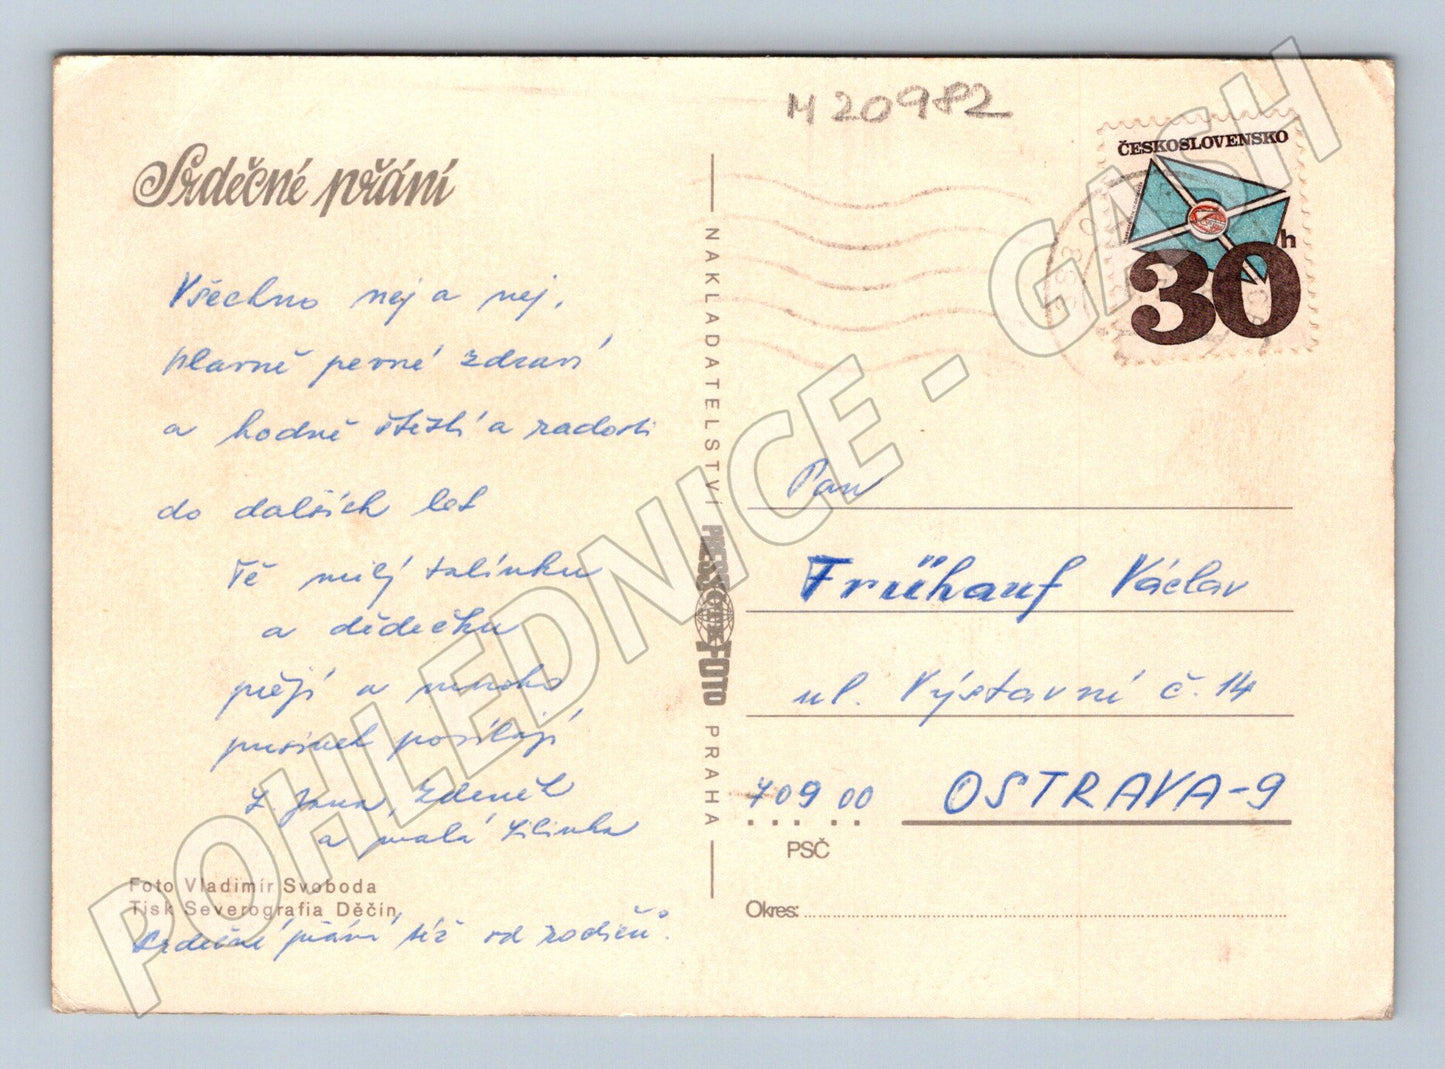 M 20982
ČESKOSLOVENSKO
30h
Srdečné přání
Všechno nej a nej,
hlavně pevné zdraví
a hodně štěstí a radosti
do dalších let
Tě milý tatínku
a dědečku
přejí a mnoho
pusinek posílají
Jana Zdeněk
a malá Lilinka
Foto Vladimír Svoboda
Tisk Severografia Děčín
Srdečné přání též od rodičů.
NAKLADATELSTVÍ PRESSFOTO PRAHA
Pan
Frühauf Václav
ul. Výstavní č. 14
709 00 OSTRAVA-9
PSČ
Okres:
POHLEDNICE - GASH